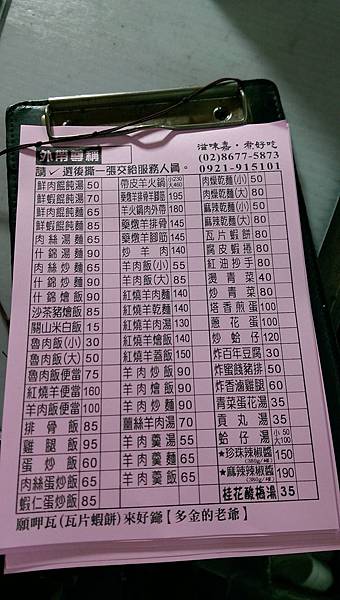 外帶專稿
滋味嘉·煮好吃
(02)8677-5873
請✓選後撕一張交給服務人員。
0921-915101
鮮肉餛飩湯 50
鮮蝦餛飩湯 70
鮮肉餛飩麵 65
鮮蝦餛飩麵 85
肉絲湯麵 65
什錦湯麵 90
肉絲炒麵 65
什錦炒麵 90
什錦燴飯 90
沙茶豬燴飯 85
關山米白飯 15
魯肉飯(小) 30
魯肉飯(大) 50
魯肉飯便當 75
紅燒羊便當 160
羊肉飯便當 100
排骨飯 85
雞腿飯 95
蛋炒飯 60
肉絲蛋炒飯 65
蝦仁蛋炒飯 85
帶皮羊火鍋 小230 大460
藥燉羊排骨麵 195
羊火鍋肉外帶 180
藥燉羊排骨 145
藥燉羊腳筋 145
炒羊肉 140
羊肉飯(小) 55
羊肉飯(大) 85
紅燒羊肉麵 140
紅燒羊乾麵 140
紅燒羊肉湯 130
紅燒羊燴飯 140
紅燒羊蓋飯 150
羊肉炒飯 90
羊肉燴飯 90
羊肉炒麵 90
薑絲羊肉湯 70
羊肉羹湯 55
羊肉羹麵 65
羊肉羹飯 65
肉燥乾麵(小) 50
肉燥乾麵(大) 80
麻辣乾麵(小) 50
麻辣乾麵(大) 80
瓦片蝦餅 80
腐皮蝦捲 80
紅油抄手 80
燙青菜 40
炒青菜 80
塔香煎蛋 100
蔥花蛋 100
炒蛤仔 120
炸百年豆腐 30
炸蜜餞豬排 50
炸香滷雞腿 60
青菜蛋花湯 35
貢丸湯 35
蛤仔湯 小50 大100
★珍珠辣椒醬 (380g/罐) 150
★麻辣辣椒醬 (380g/罐) 190
桂花酸梅湯 35
願呷瓦(瓦片蝦餅)來好鎊【多金的老爺】